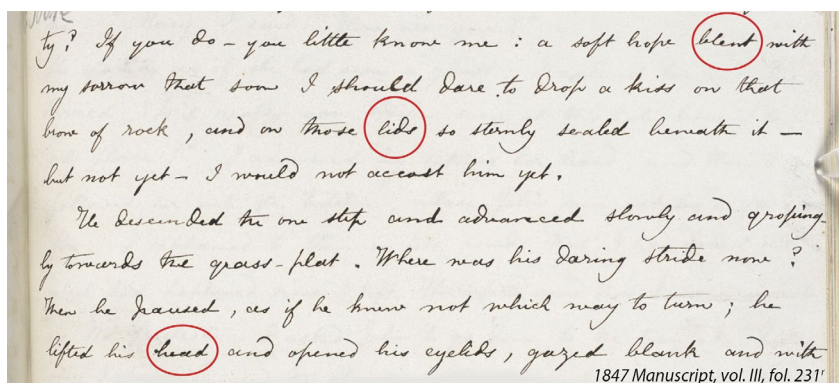 ty? If you do – you little know me : a soft hope blent with
my sorrow that soon I should dare to drop a kiss on that
brow of rock, and on those lids so sternly sealed beneath it –
but not yet – I would not accost him yet.
He descended the one step and advanced slowly and groping
ly towards the grass-plat. Where was his daring stride now?
Then he paused, as if he knew not which way to turn ; he
lifted his head and opened his eyelids, gazed blank and with
1847 Manuscript, vol. III, fol. 231r